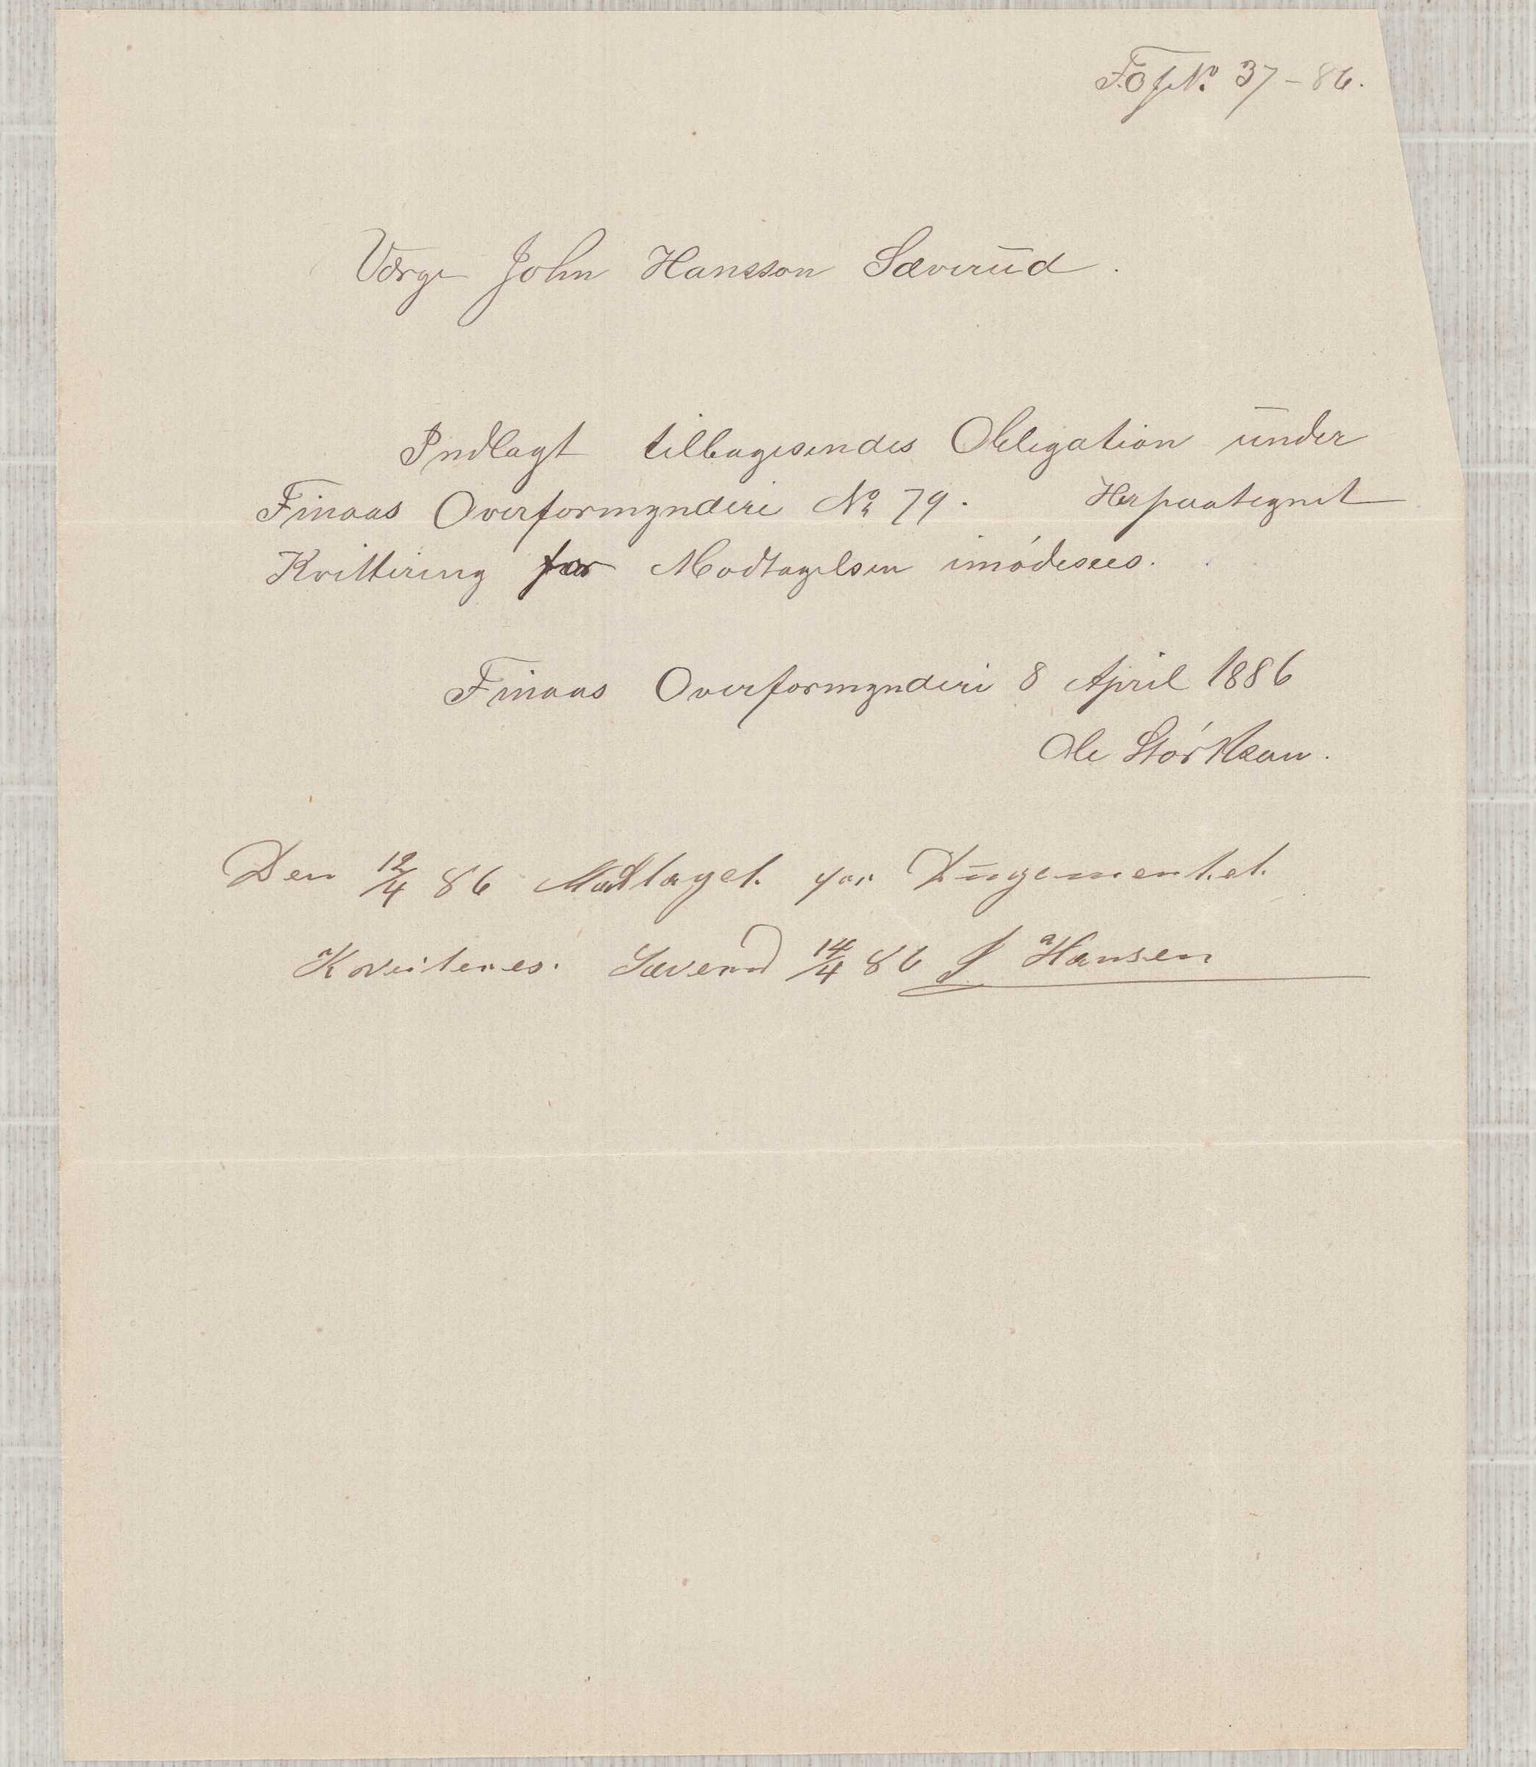 F.O.J. No 37-86.
Værge John Hansson Sæverud.
Indlagt tilbagesendes Obligation under
Finaas Overformynderi No 79. Herpaategnet
Kvittering for Modtagelsen imødesees.
Finaas Overformynderi 8 April 1886
Ole Størksen.
Den 12/4 86 Modtaget
Kviteres. Sæverud 14/4 86 J Hansen